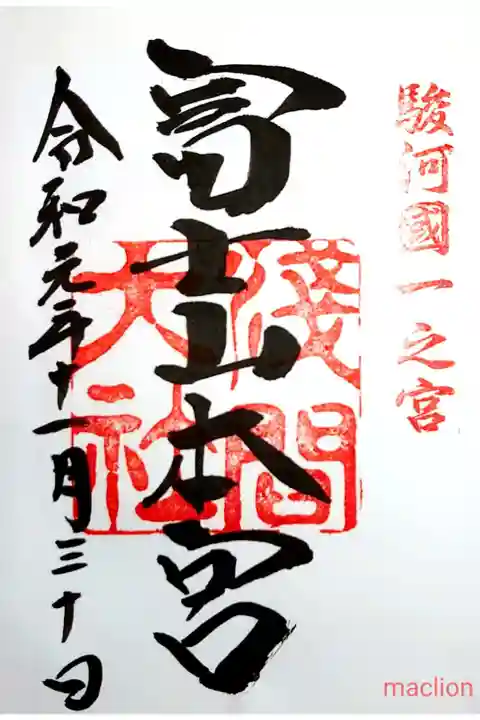 駿河國一之宮
冨士山本宮
淺間
大社
令和元年十一月三十日
maclion